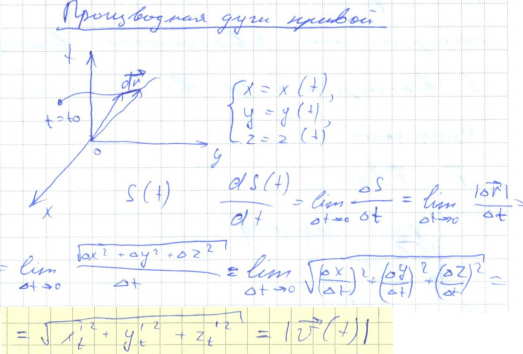 Производная дуги кривой
t
dr⃗
t=t0
0
y
x
{ x = x(t),
y = y(t),
z = z(t)
S(t) dS(t)/dt = lim Δt→0 ΔS/Δt = lim Δt→0 |Δr⃗|/Δt =
= lim Δt→0 √(Δx² + Δy² + Δz²)/Δt = lim Δt→0 √((Δx/Δt)² + (Δy/Δt)² + (Δz/Δt)²) =
= √(x't² + y't² + z't²) = |v⃗(t)|